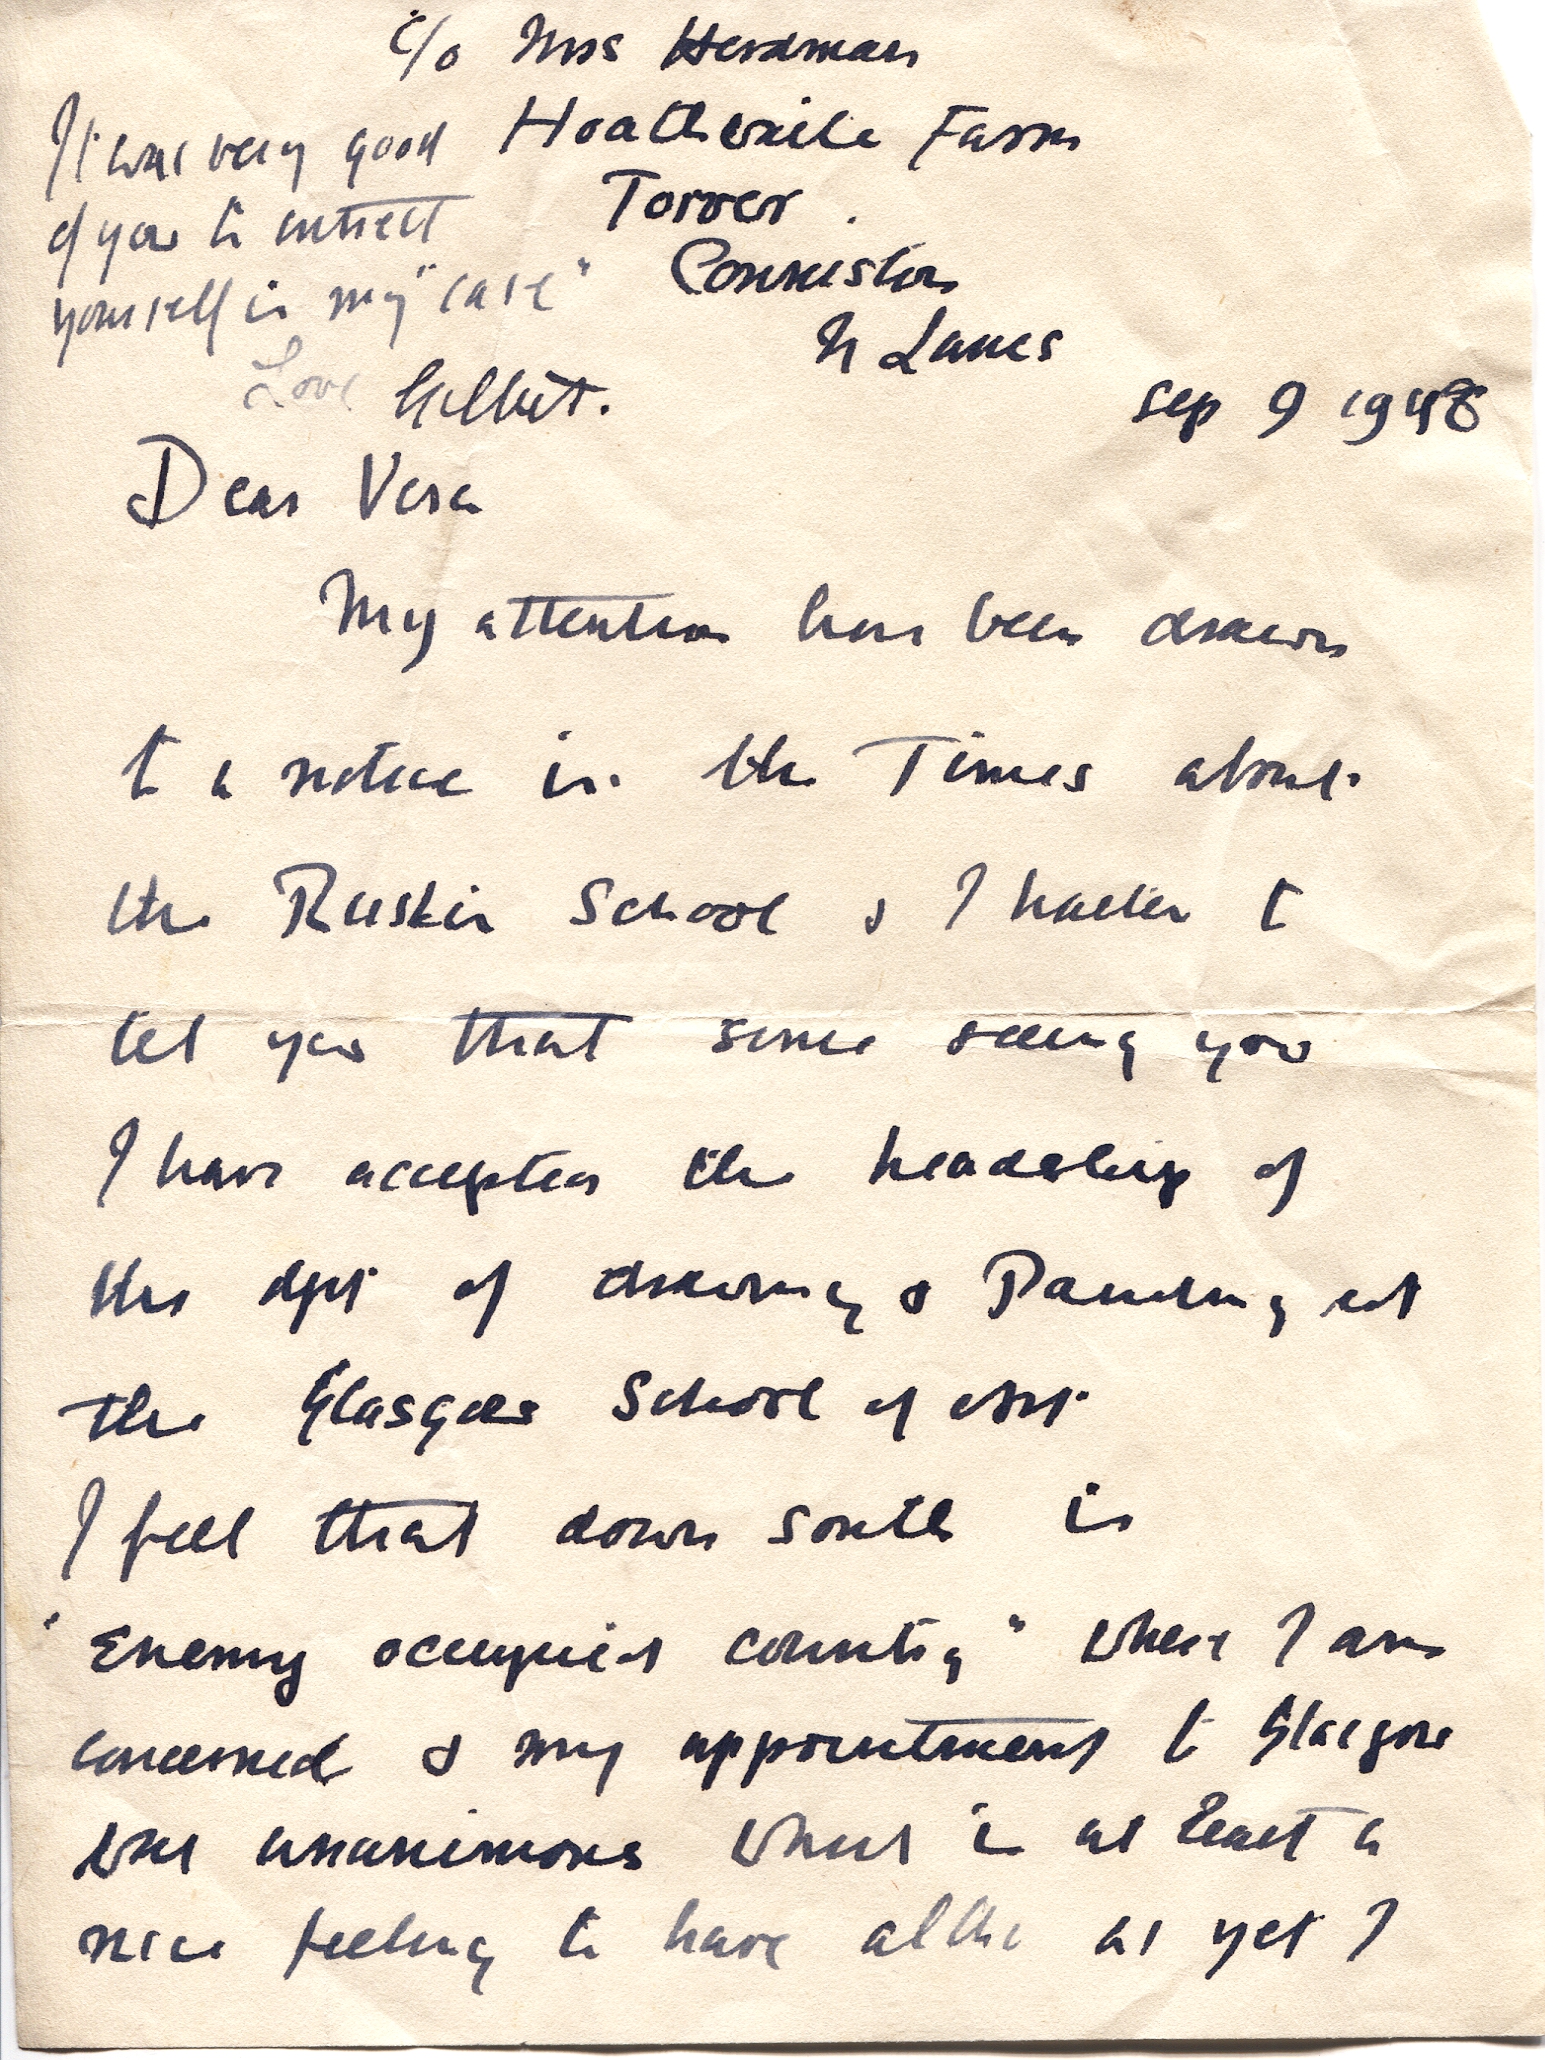 c/o Mrs Herdman
Hoathwaite Farm
Torver.
Conniston
N Lancs
Sep 9 1948
It was very good
of you to intrest
yourself in my "case"
Love Gilbert.
Dear Vera
My attention has been drawn
to a notice in the Times about
the Ruskin School & I hasten to
tell you that since seeing you
I have accepted the headship of
the dept of drawing & Painting at
the Glasgow School of Art.
I feel that down south is
"Enemy occupied country" where I am
concerned & my appointment to Glasgow
was unanimous which is at least a
nice feeling to have altho as yet I